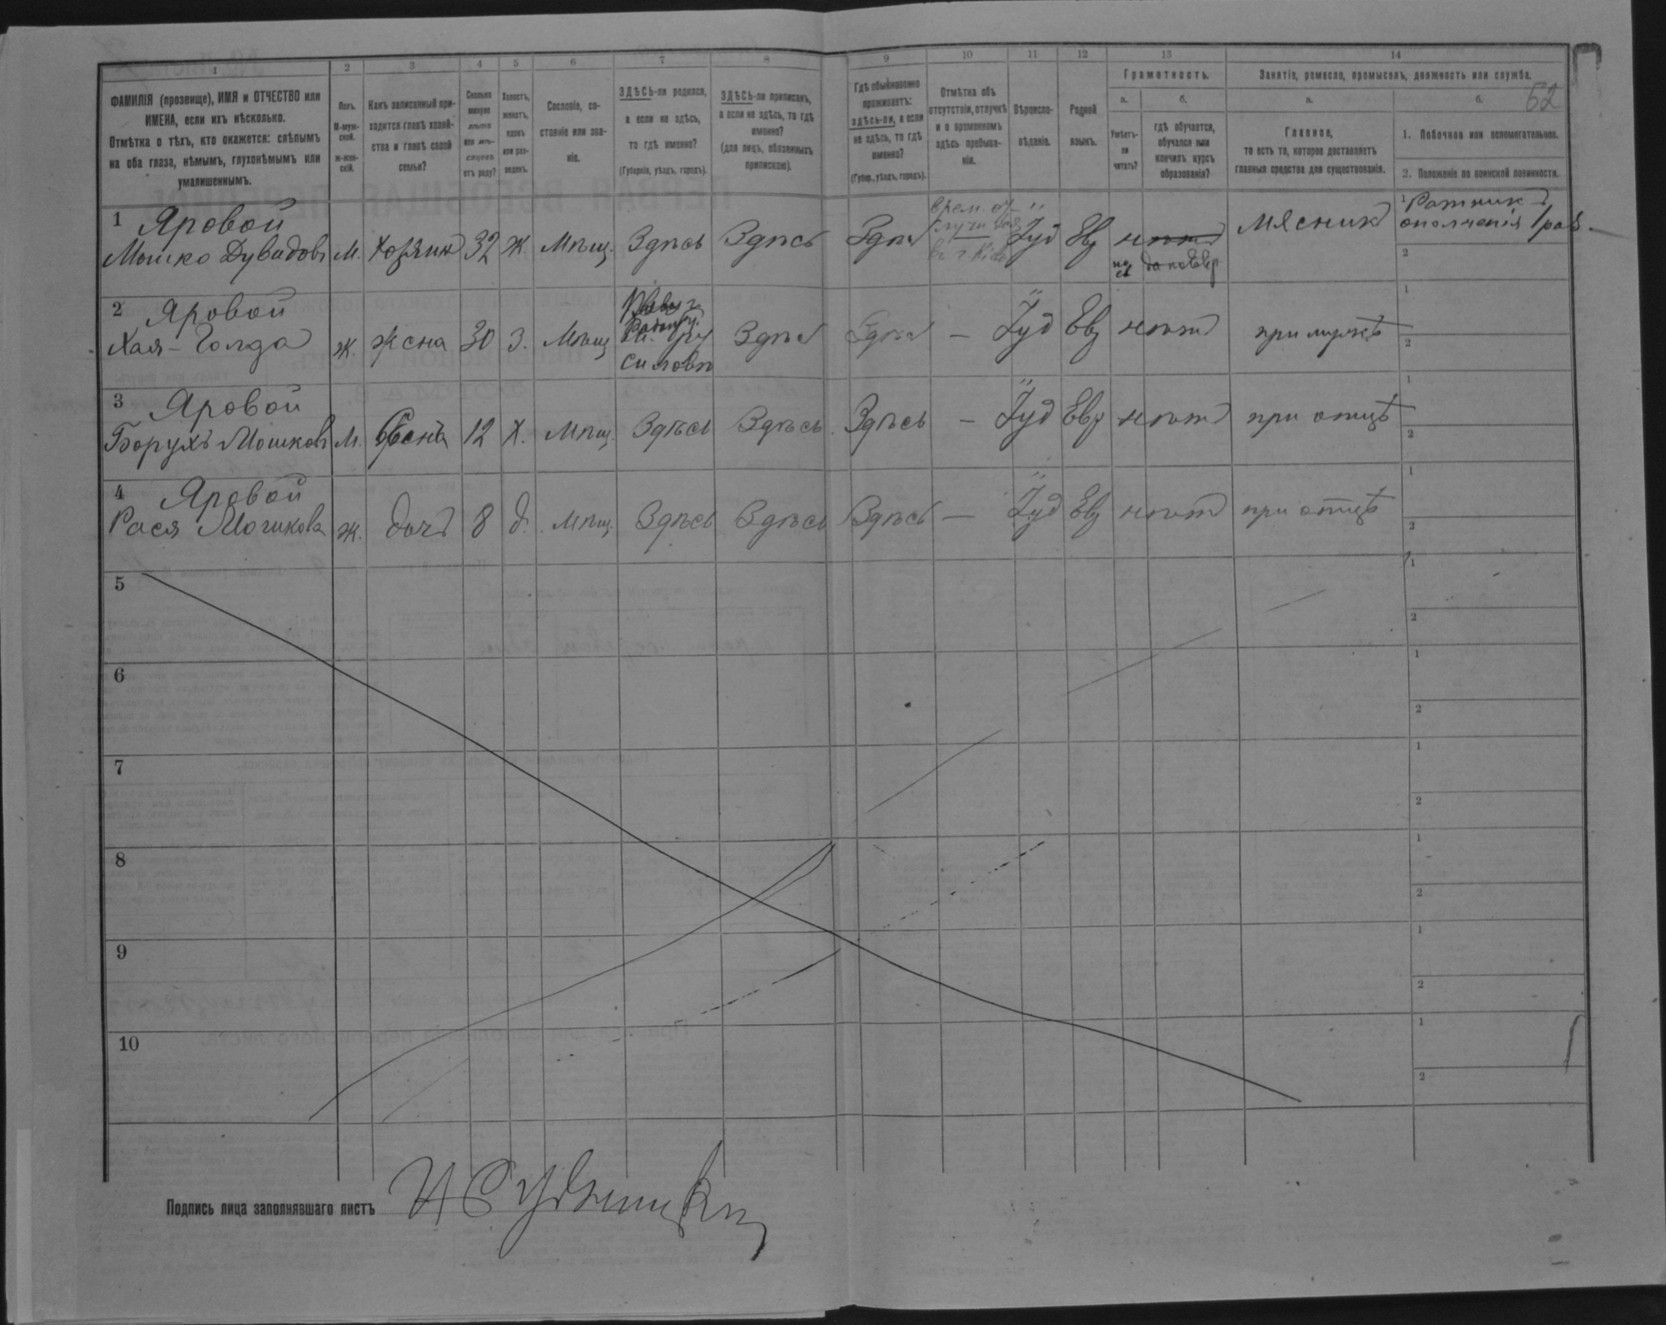 1 2 3 4 5 6 7 8 9 10 11 12 13 14
62
ФАМИЛІЯ (прозвище), ИМЯ и ОТЧЕСТВО или
ИМЕНА, если ихъ нѣсколько.
Отмѣтка о тѣхъ, кто окажется: слѣпымъ
на оба глаза, нѣмымъ, глухонѣмымъ или
умалишеннымъ.
Полъ.
М-муж-
ской.
ж-жен-
скій.
Какъ записанный при-
ходится главѣ хозяй-
ства и главѣ своей
семьи?
Сколько
минуло
лѣтъ
или мѣ-
сяцевъ
отъ роду?
Холостъ,
женатъ,
вдовъ
или раз-
веденъ.
Сословіе, со-
стояніе или зва-
ніе.
ЗДѢСЬ-ли родился,
а если не здѣсь,
то гдѣ именно?
(Губернія, уѣздъ, городъ).
ЗДѢСЬ-ли приписанъ,
а если не здѣсь, то гдѣ
именно?
(для лицъ, обязанныхъ
припискою).
Гдѣ обыкновенно
проживаетъ:
здѣсь-ли, а если
не здѣсь, то гдѣ
именно?
(Губер., уѣздъ, городъ).
Отмѣтка объ
отсутствіи, отлучкѣ
и о временномъ
здѣсь пребыва-
ніи.
Вѣроиспо-
вѣданіе.
Родной
языкъ.
Грамотность.
а.
Умѣетъ-
ли
читать?
б.
гдѣ обучается,
обучался или
кончилъ курсъ
образованія?
Занятіе, ремесло, промыселъ, должность или служба.
а.
Главное,
то есть то, которое доставляетъ
главныя средства для существованія.
б.
1. Побочное или вспомогательное.
2. Положеніе по воинской повинности.
1 Яровой
Мошко Дувидовъ М. Хозяинъ 32 Ж. Мѣщ. Здѣсь Здѣсь Здѣсь Іуд Евр нѣтъ мясникъ
1 Ратникъ
ополченія 1 раз.
2
2 Яровой
Хая-Голда ж. жена 30 З. Мѣщ Здѣсь Здѣсь — Іуд Евр нѣтъ при мужѣ
1
2
3 Яровой
Борухъ Мошковъ М. сынъ 12 Х. Мѣщ. Здѣсь Здѣсь Здѣсь — Іуд Евр нѣтъ при отцѣ
1
2
4 Яровой
Рася Мошкова ж. дочь 8 д. Мѣщ. Здѣсь Здѣсь Здѣсь — Іуд Евр нѣтъ при отцѣ
1
2
5
1
2
6
1
2
7
1
2
8
1
2
9
1
2
10
1
2
Подпись лица заполнявшаго листъ